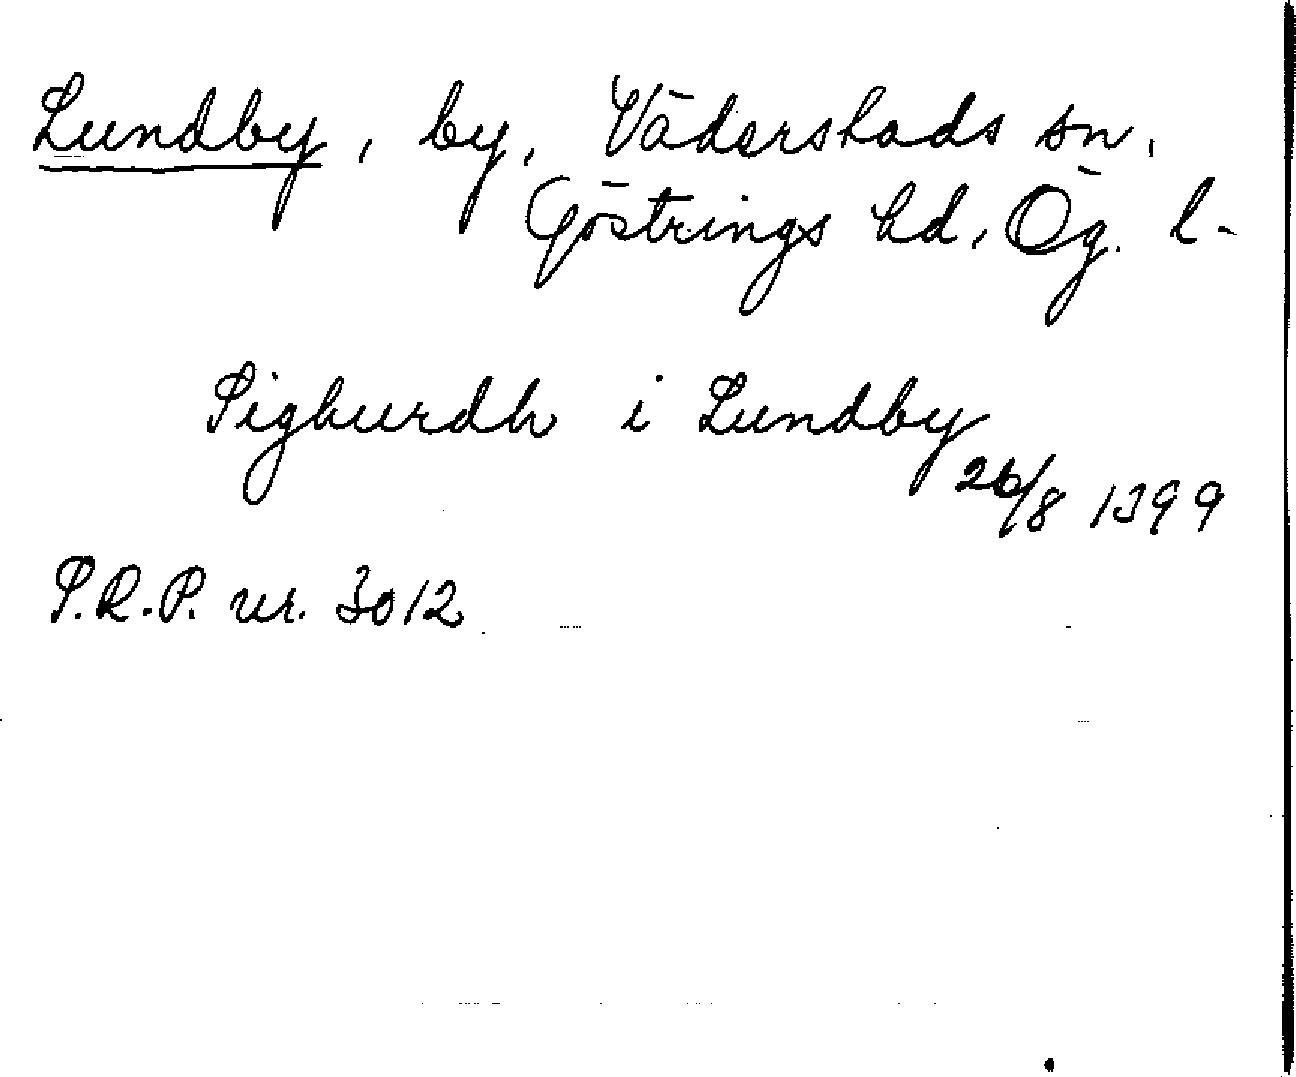 Lundby, by, Väderstads sn,
Göstrings hd, Ög. l.
Sighurdh i Lundby
26/8 1399
S.R.P. nr. 3012